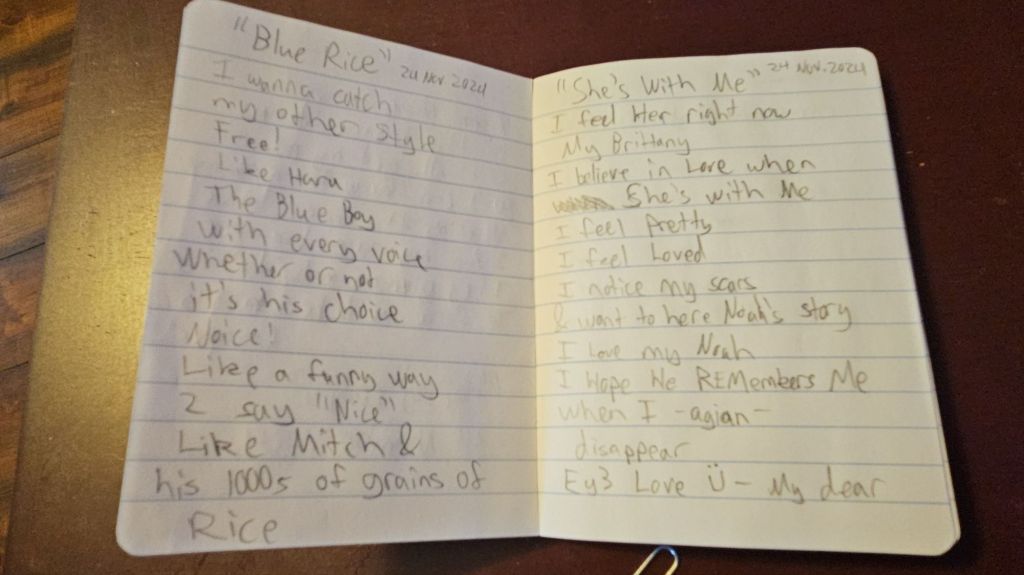 "Blue Rice"
24 Nov. 2024
I wanna catch
my other style
Free!
Like Haru
The Blue Boy
with every voice
Whether or not
it's his choice
Noice!
Like a funny way
2 say "Nice"
Like Mitch &
his 1000s of grains of
Rice
"She's With Me" 24 Nov. 2024
I feel Her right now
My Brittany
I believe in Love when
She's with Me
I feel Pretty
I feel Loved
I notice my scars
& want to here Noah's story
I Love my Noah
I Hope He REMembers Me
when I -agian-
disappear
Ey3 Love Ü - My dear